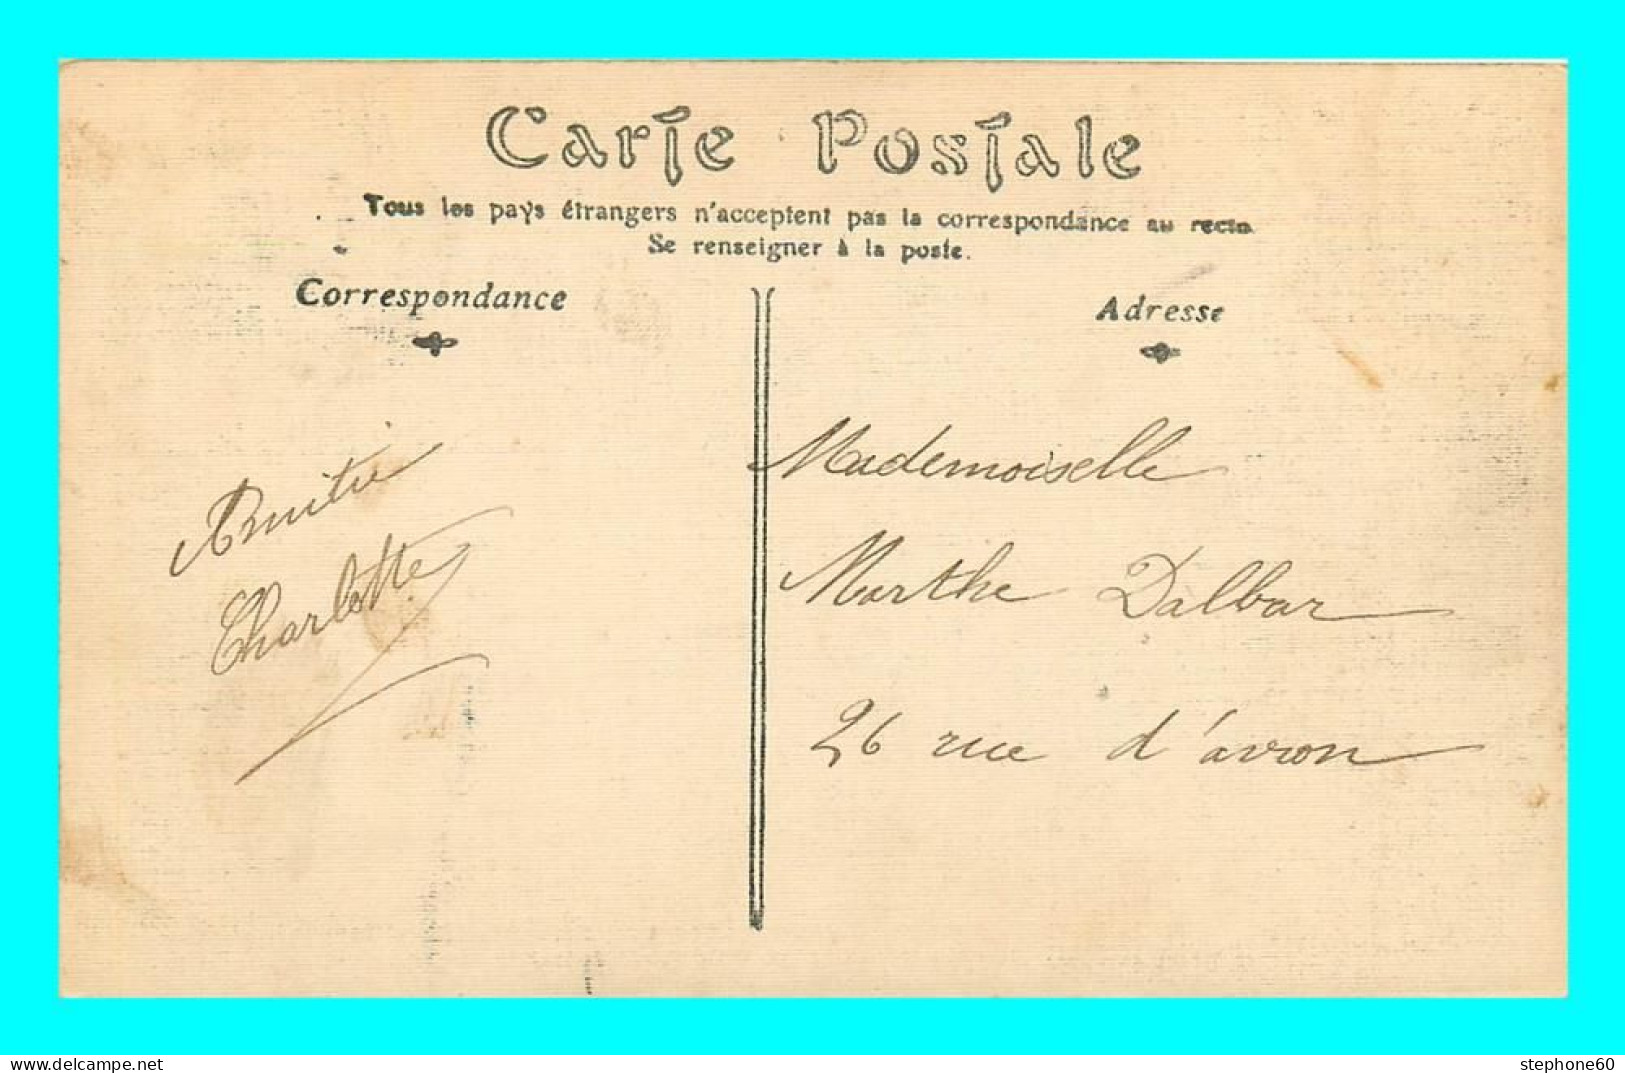 Carte Postale
Tous les pays étrangers n'acceptent pas la correspondance au recto
Se renseigner à la poste.
Correspondance
Adresse
Amitié
Charlotte
Mademoiselle
Marthe Dalbar
26 rue d'avron
www.delcampe.net
stephone60